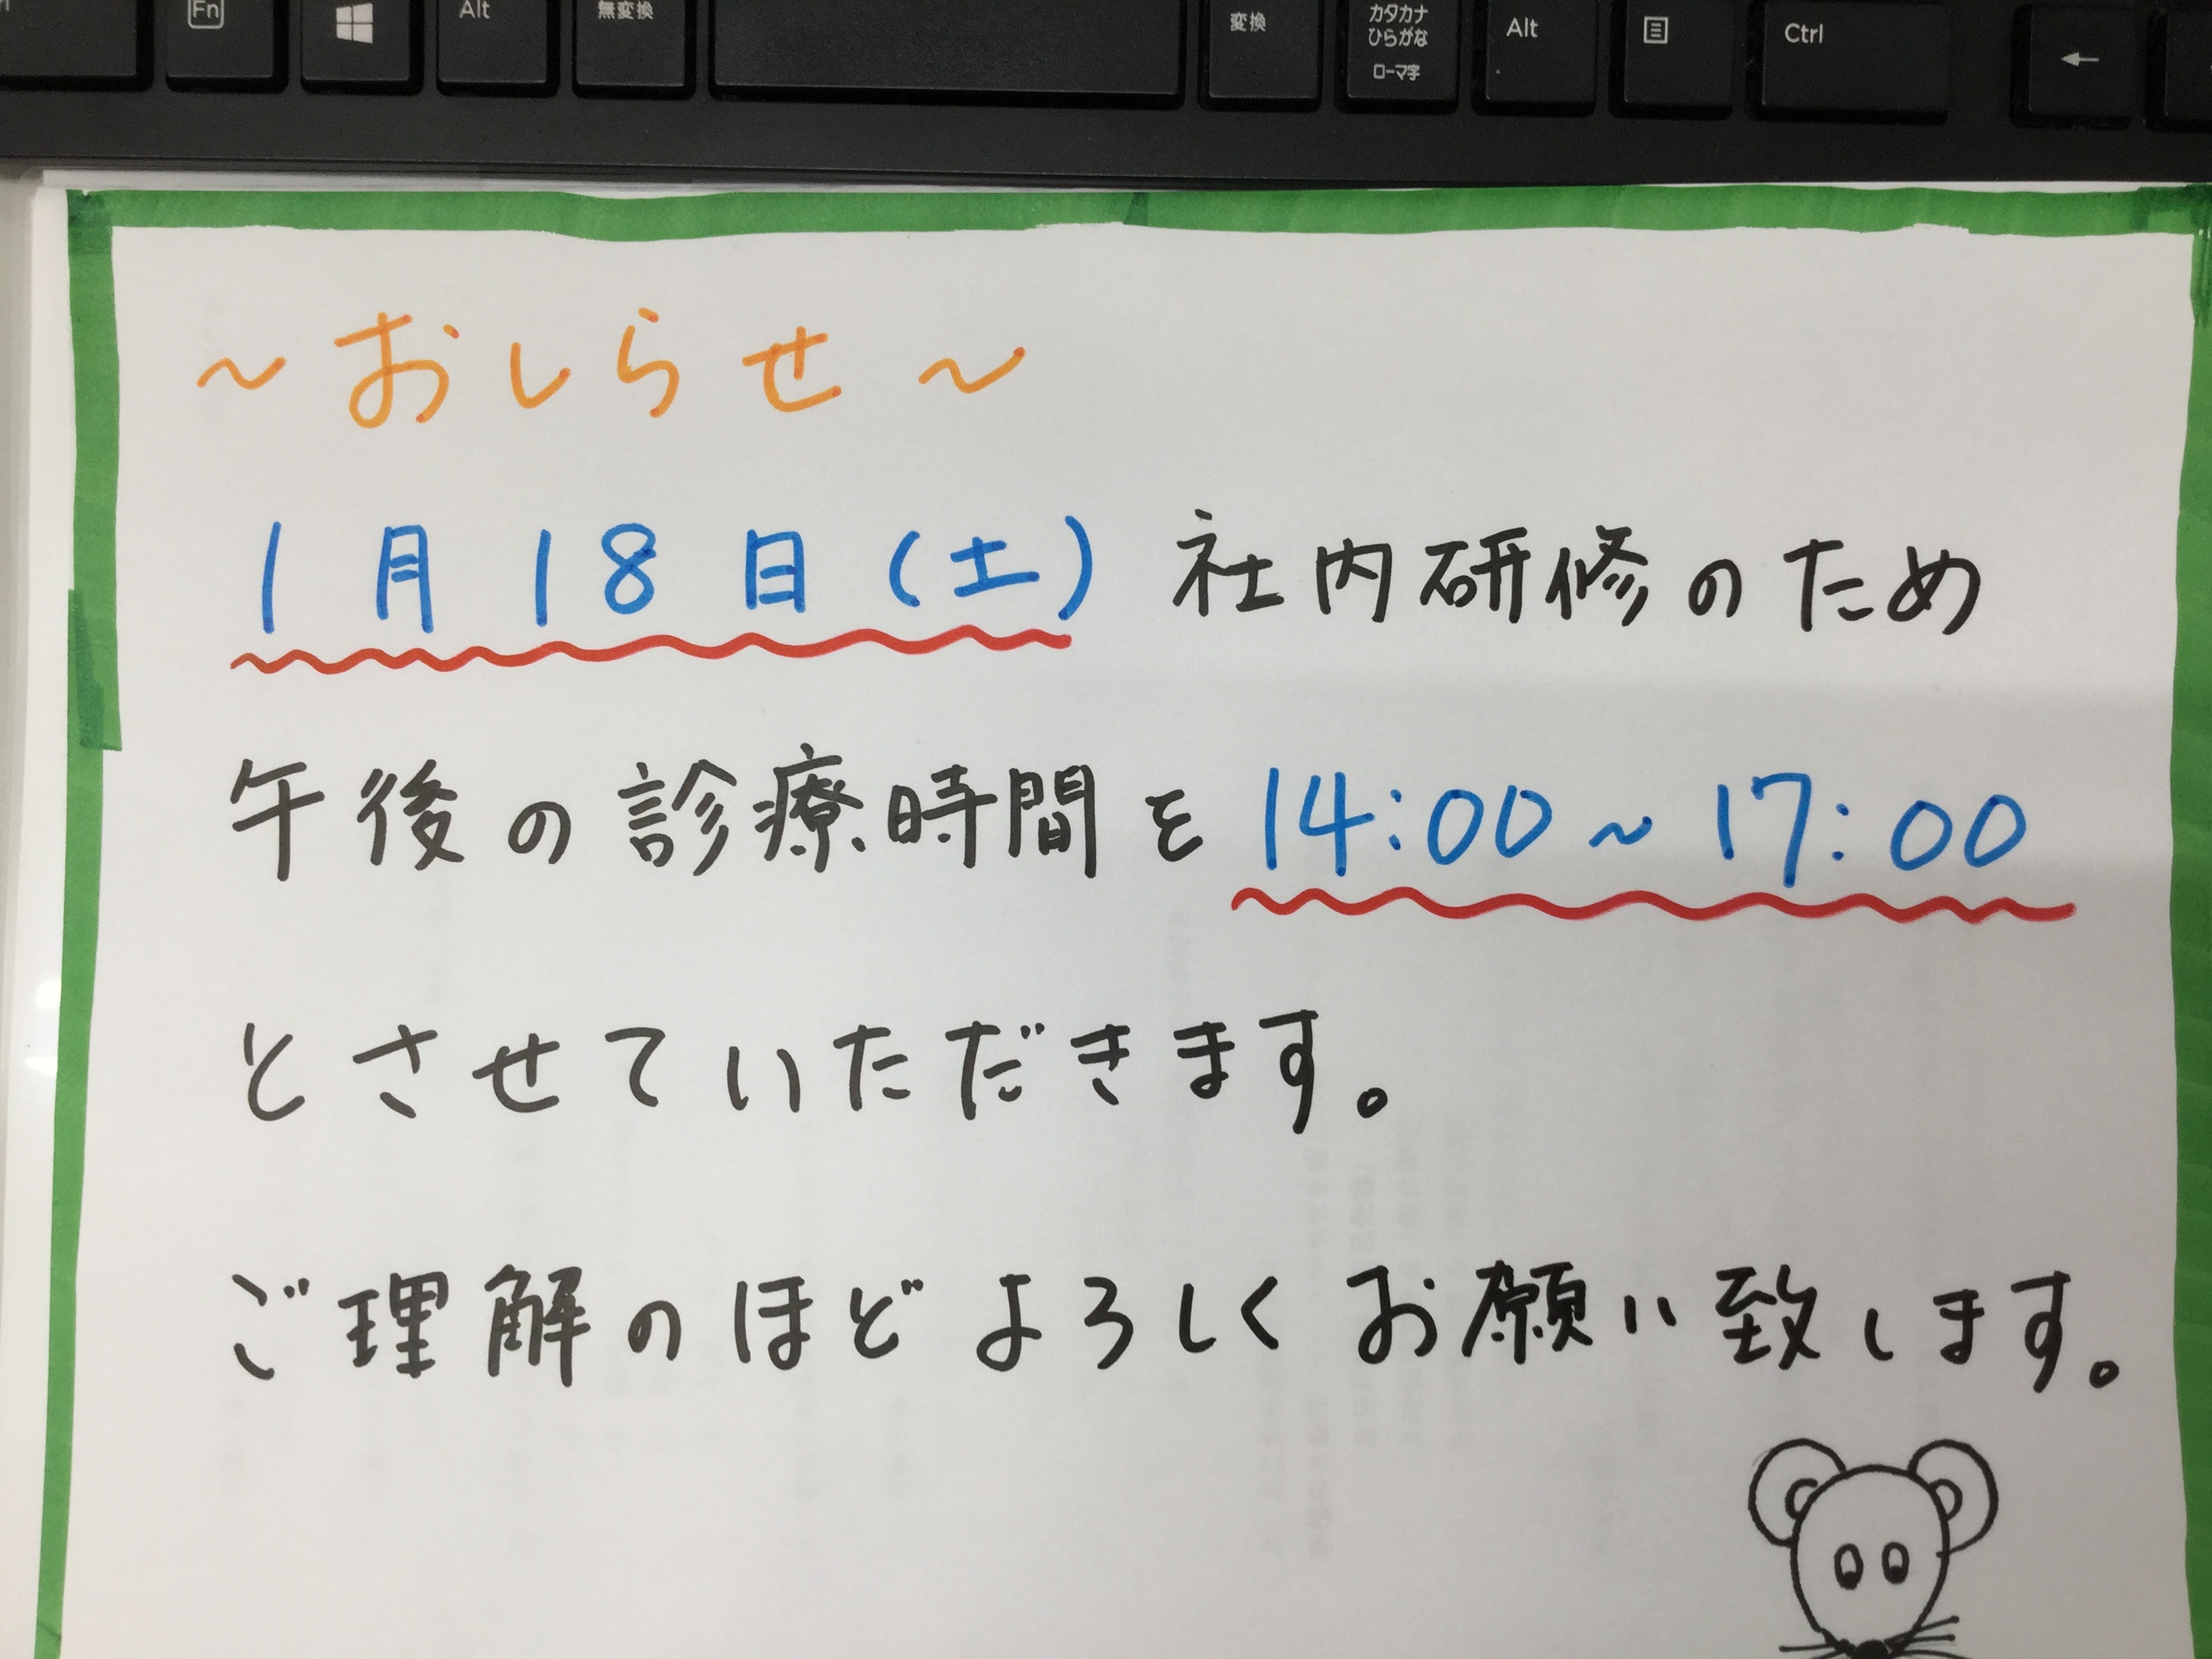 Fn
Alt
無変換
変換
カタカナ
ひらがな
ローマ字
Alt
Ctrl
←
～おしらせ～
1月18日(土) 社内研修のため
午後の診療時間を 14:00～17:00
とさせていただきます。
ご理解のほどよろしくお願い致します。